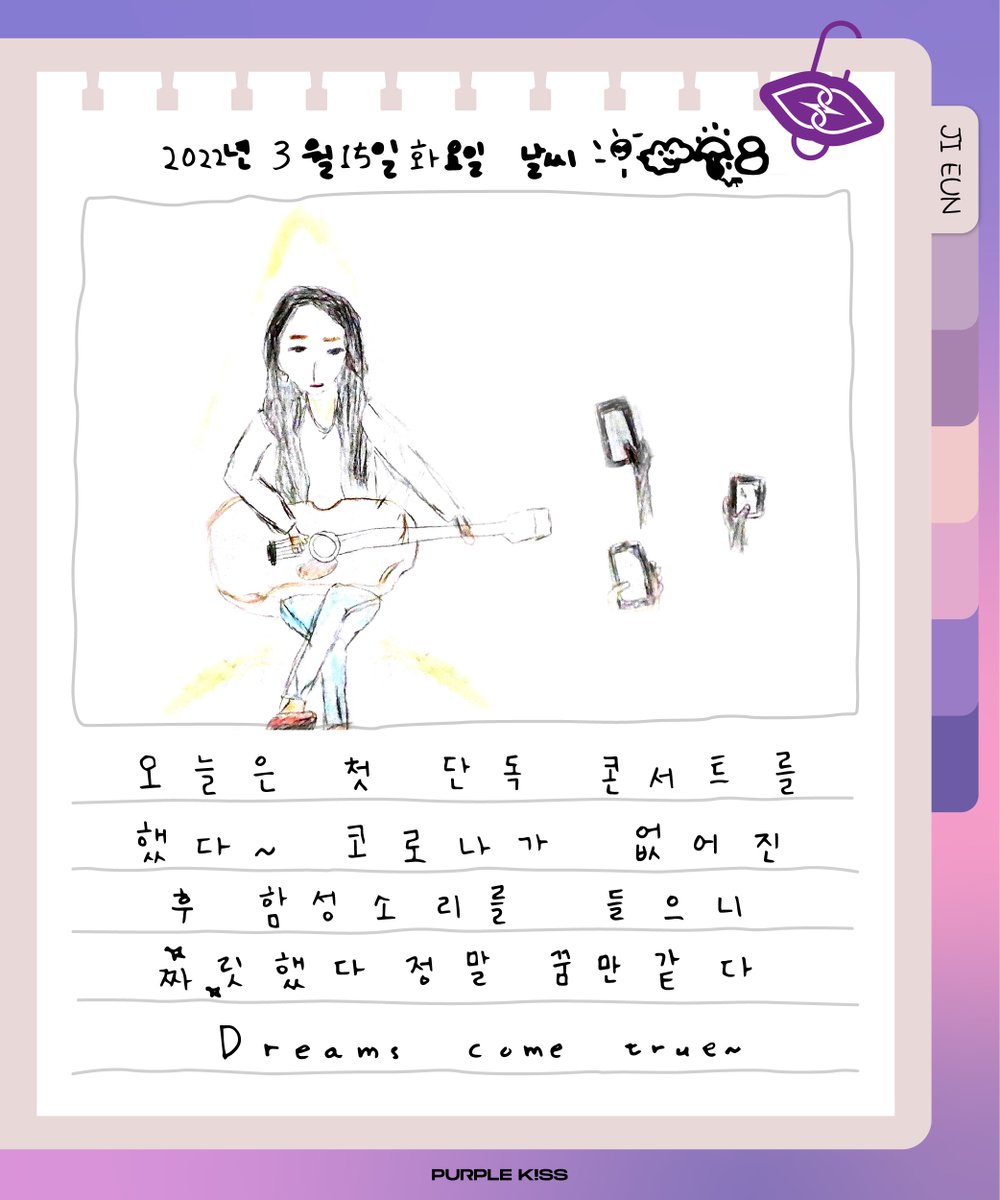 2022년 3월 15일 화요일 날씨
JI EUN
오늘은 첫 단독 콘서트를
했다~ 코로나가 없어진
후 함성소리를 들으니
짜릿했다 정말 꿈만같다
Dreams come true~
PURPLE K!SS